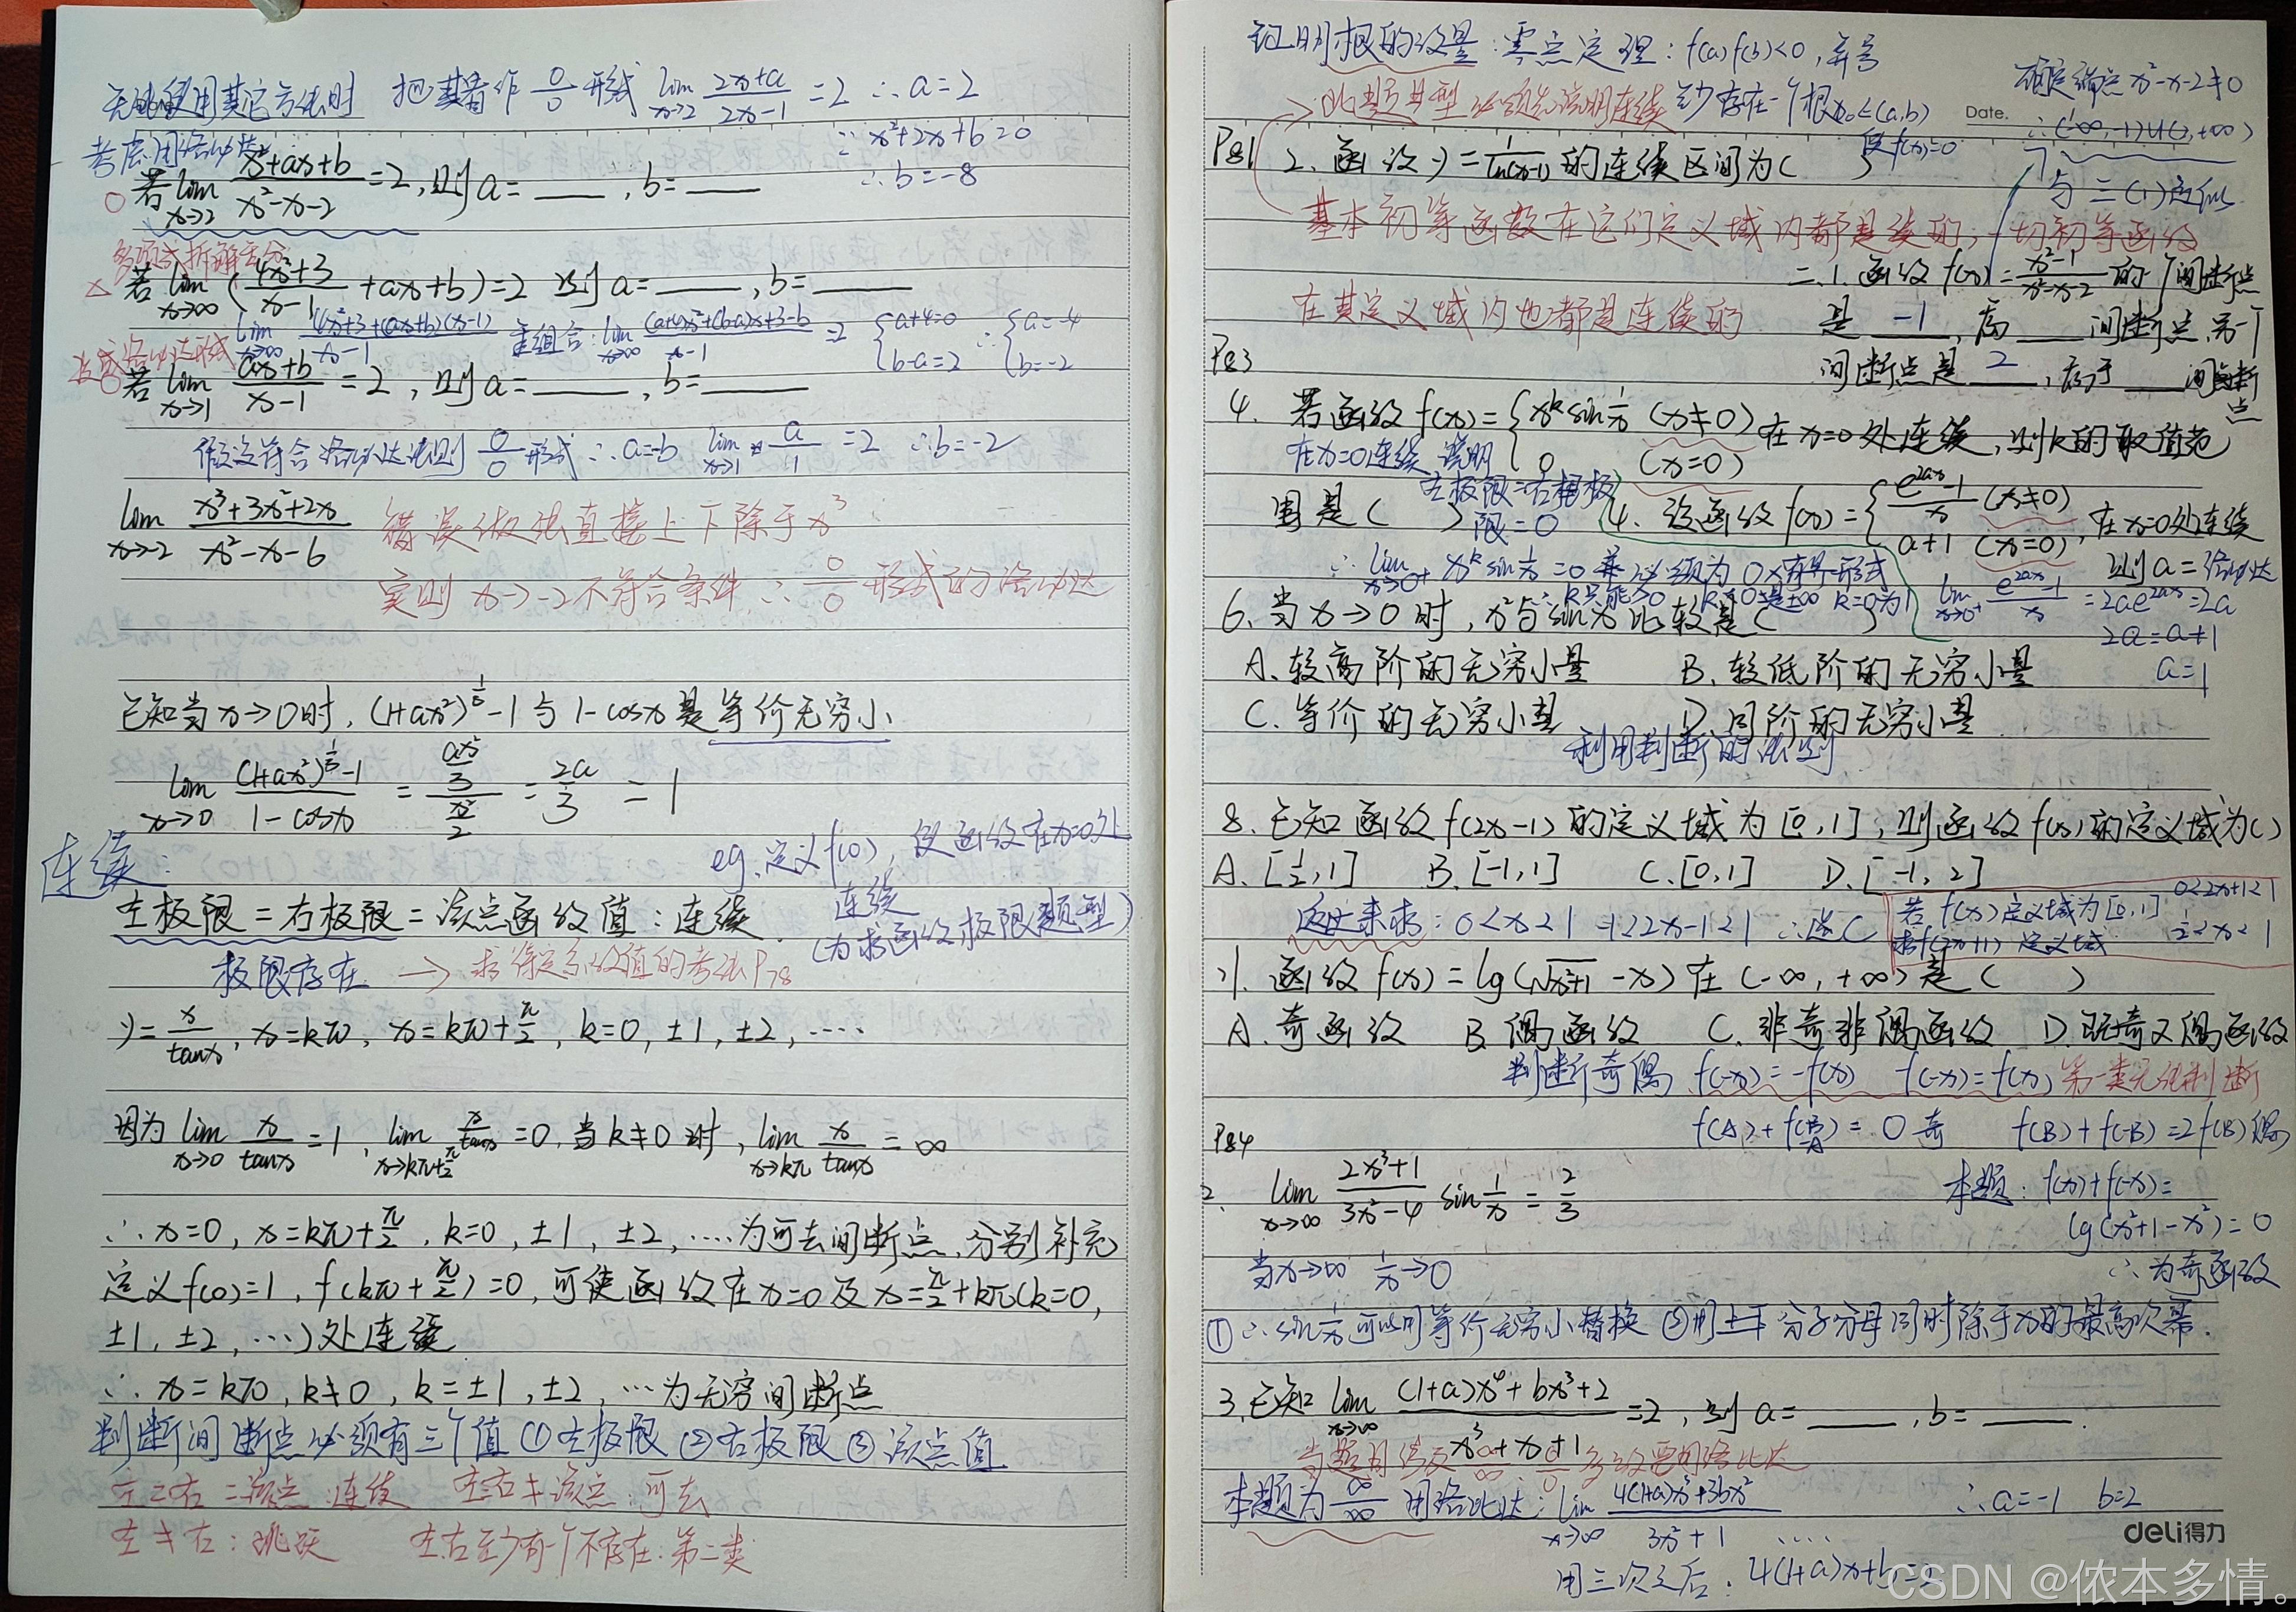 无法使用其它方法时 把其看作 0/0 形式 lim x→2 (2x+a)/(2x-1) = 2 ∴a=2
考虑用洛必达
∵x²+2x+b=0
∴b=-8
若 lim x→2 (x²+ax+b)/(x²-x-2) = 2, 则 a=____, b=____
多项式拆解
若 lim x→∞ ((4x²+3)/(x-1) + ax+b) = 2 则 a=____, b=____
lim x→∞ (4x²+3+(ax+b)(x-1))/(x-1) 重组合: lim x→∞ ((a+4)x²+(b-a)x+3-b)/(x-1) = 2 {a+4=0 b-a=2 ∴{a=-4 b=-2
若 lim x→1 (ax+b)/(x-1) = 2, 则 a=____, b=____
假设符合洛必达法则 0/0 形式 ∴a=-b lim x→1 a/1 = 2 ∴b=-2
lim x→-2 (x³+3x²+2x)/(x²-x-6) 错误做法直接上下除于x³
实则 x→-2 不符合条件 ∴ 0/0 形式的洛必达
已知当x→0时, (1+ax²)^(1/3)-1 与 1-cosx 是等价无穷小
lim x→0 ((1+ax²)^(1/3)-1)/(1-cosx) = (ax²/3)/(x²/2) = 2a/3 = 1
连续:
eg. 定义f(0), 使函数在x=0处
连续
(为求函数极限题型)
左极限=右极限=该点函数值: 连续
极限存在 → 求待定系数值的考法P78
y=x/tanx, x=kπ, x=kπ+π/2, k=0, ±1, ±2, ……
因为 lim x→0 x/tanx = 1, lim x→kπ+π/2 x/tanx = 0, 当k≠0时, lim x→kπ x/tanx = ∞
∴x=0, x=kπ+π/2, k=0, ±1, ±2, ……为可去间断点, 分别补充
定义f(0)=1, f(kπ+π/2)=0, 可使函数在x=0及x=π/2+kπ(k=0,
±1, ±2, …)处连续
∴x=kπ, k≠0, k=±1, ±2, …为无穷间断点
判断间断点必须有三个值 ①左极限 ②右极限 ③该点值
左=右=该点: 连续 左右≠该点: 可去
左≠右: 跳跃 左右至少有个不存在: 第二类
证明根的设是: 零点定理: f(a)f(b)<0, 异号
此题典型必须先说明连续 至少存在一个根x₀∈(a,b)
使f(x)=0
确定端点 x²-x-2≠0
Date.
∴(-∞,-1)∪(2,+∞)
与二(1)同似
P81 2. 函数y=1/ln(x-1)的连续区间为( )
基本初等函数在它们定义域内都是连续的, 一切初等函数
在其定义域内也都是连续的
二.1. 函数f(x)=(x²-1)/(x²-x-2)的一个间断点
是 -1, 属____间断点, 另一个
间断点是 2, 属于____间断
点
P83
4. 若函数f(x)={x^k sin 1/x (x≠0) 0 (x=0) 在x=0处连续, 则k的取值范
围是( )
在x=0连续 说明
左极限=右极
限=0
∴lim x→0⁺ x^k sin 1/x = 0 必须为0×有界形式
∴k只能>0 k=0为1
4. 设函数f(x)={(e^(2ax)-1)/x (x≠0) a+1 (x=0), 在x=0处连续
则a= 洛必达
lim x→0⁺ (e^(2ax)-1)/x = 2ae^(2ax) = 2a
2a=a+1
a=1
6. 当x→0时, x²与sinx比较是( )
A. 较高阶的无穷小量 B. 较低阶的无穷小量
C. 等价的无穷小量 D. 同阶的无穷小量
利用判断的法则
8. 已知函数f(2x-1)的定义域为[0,1], 则函数f(x)的定义域为( )
A. [1/2,1] B. [-1,1] C. [0,1] D. [-1,2]
反过来求: 0<x<1 -1<2x-1<1 ∴选C
若f(x)定义域为[0,1] 0<2x+1<1
求f(2x+1)定义域
21. 函数f(x)=lg(√(x²+1)-x)在(-∞,+∞)是( )
A. 奇函数 B. 偶函数 C. 非奇非偶函数 D. 既奇又偶函数
判断奇偶 f(-x)=-f(x) f(-x)=f(x) 第一类无法判断
f(A)+f(-A)=0 奇 f(B)+f(-B)=2f(B) 偶
P84
2. lim x→∞ (2x³+1)/(3x²-4) sin 1/x = 2/3
本题: f(x)+f(-x)=
lg(x²+1-x²)=0
∴为奇函数
当x→∞ 1/x→0
①∴sin 1/x 可以用等价无穷小替换 ②用上下分子分母同时除于x的最高次幂.
3. 已知 lim x→∞ ((1+a)x⁴+bx³+2)/(x³+x+1) = 2, 则 a=____, b=____.
本题为 ∞/∞ 用洛必达: lim x→∞ (4(1+a)x³+3bx²)/(3x²+1) …… ∴a=-1 b=2
用三次之后: 4(1+a)x+b=2
deli得力
CSDN @侬本多情。